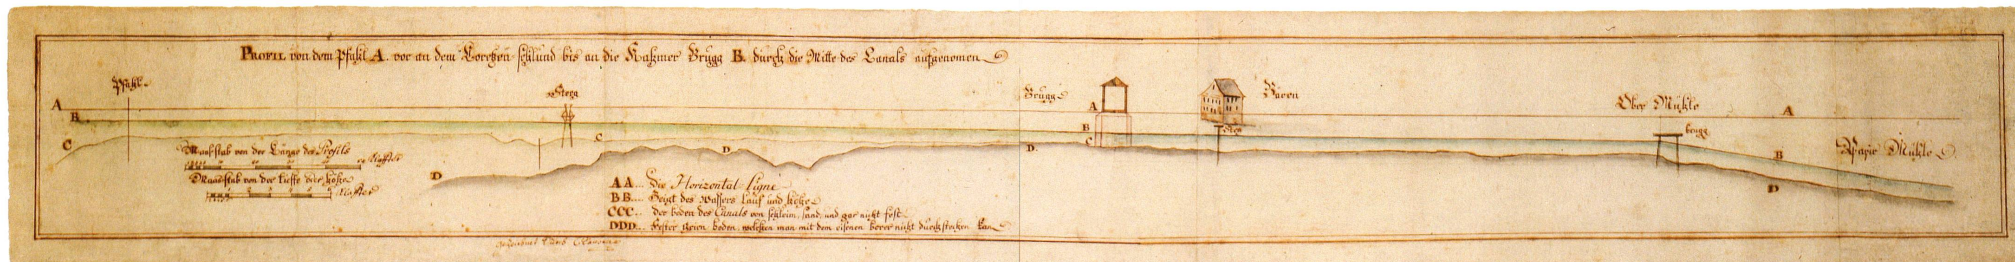 PROFIL von dem Pfahl A. vor an dem schlund bis an die Brügg B. durch die Mitte des Canals aufgenomen
Pfahl
Steeg
Brügg
Bären
Ober Mühle
A
A
A
B
B
Steg
brugg
C
C
C
Papir Mühle
B
D
D
D.
D
Maasstab von der Länge des Profils
Klaffter
Maasstab von der tieffe oder höhe
Klaffter
AA... Die Horizontal-Ligne
BB.... Zeigt des Wassers Lauf und höhe
CCC.. der boden des Canals von schleim, sand, und gar nicht fest
DDD.. fester stein boden, welchen man mit dem eisenen borer nicht durchstechen kan